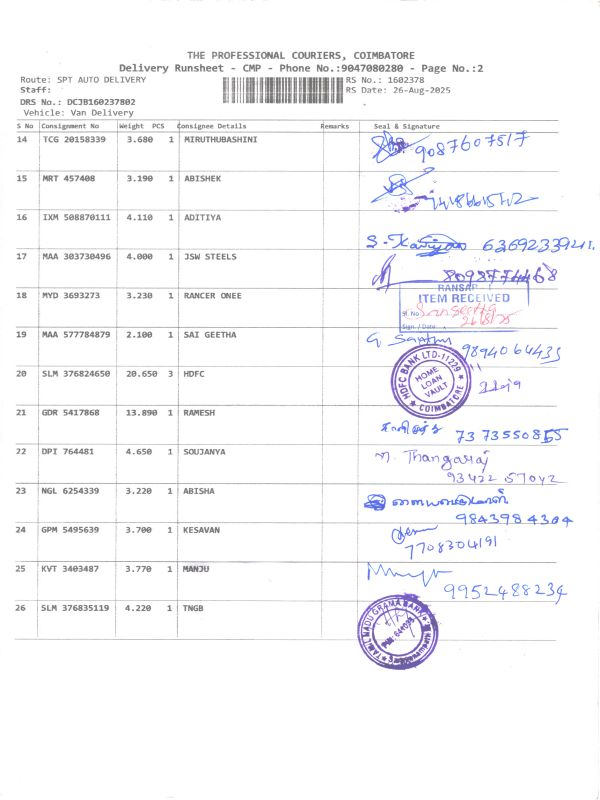 THE PROFESSIONAL COURIERS, COIMBATORE
Delivery Runsheet - CMP - Phone No.:9047080280 - Page No.:2
Route: SPT AUTO DELIVERY RS No.: 1602378
Staff: RS Date: 26-Aug-2025
DRS No.: DCJB160237802
Vehicle: Van Delivery
S No Consignment No Weight PCS Consignee Details Remarks Seal & Signature
14 TCG 20158339 3.680 1 MIRUTHUBASHINI 9087607517
15 MRT 457408 3.190 1 ABISHEK
16 IXM 508870111 4.110 1 ADITIYA
S. 6369233941
17 MAA 303730496 4.000 1 JSW STEELS
8098774468
18 MYD 3693273 3.230 1 RANCER ONEE
ITEM RECEIVED
Sl. No
Sign. / Date 26/8/25
19 MAA 577784879 2.100 1 SAI GEETHA
9894064435
20 SLM 376824650 20.650 3 HDFC
HDFC BANK LTD-11229
HOME LOAN VAULT
COIMBATORE
21 GDR 5417868 13.890 1 RAMESH
7373550855
22 DPI 764481 4.650 1 SOUJANYA
M. Thangaraj
93422 57042
23 NGL 6254339 3.220 1 ABISHA
9843984304
24 GPM 5495639 3.700 1 KESAVAN
7708304191
25 KVT 3403487 3.770 1 MANJU
9952488234
26 SLM 376835119 4.220 1 TNGB
TAMIL NADU GRAMA BANK